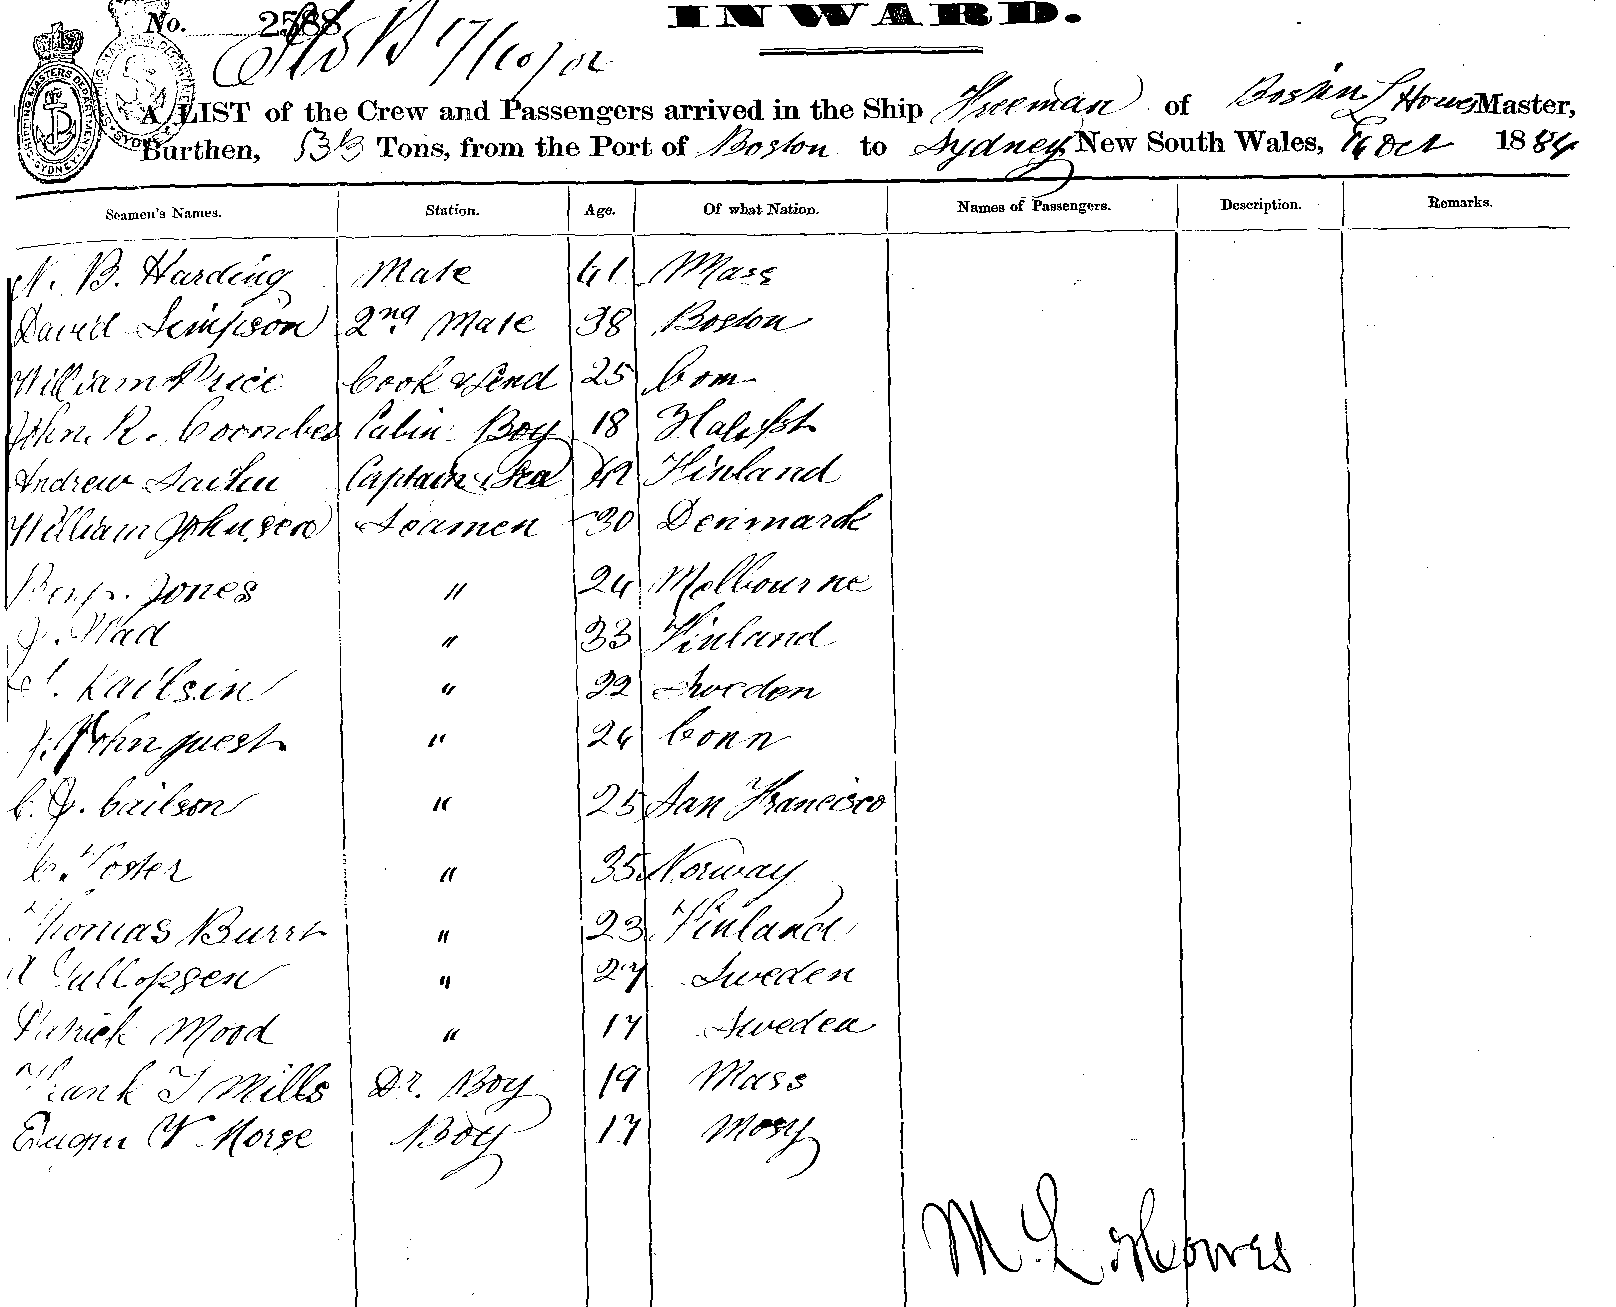 No. 2588
INWARD.
A LIST of the Crew and Passengers arrived in the Ship Freeman of Boston, Howes Master,
Burthen, Tons, from the Port of Boston to Sydney New South Wales, Oct 1884
Seamen's Names. Station. Age. Of what Nation. Names of Passengers. Description. Remarks.
N. B. Harding Mate 41 Mass
David Simpson 2nd Mate 38 Boston
William Price Cook & Send 25 Com
John R. Coombes Cabin Boy 18
Andrew Captain Sea Finland
William Johnsen Seamen 30 Denmark
Benj. Jones " 24 Melbourne
J. Wad " 33 Finland
Kailsin " 22 Sweden
J. John guest " 24 Conn
C. J. Cailson " 25 San Francisco
C. Foster " 35 Norway
Thomas Burrt " 23 Finland
" 27 Sweden
Patrick Mood " 17 Sweden
Frank T Mills Dr. Boy 19 Mass
W Morse Boy 17
M. L. Howes